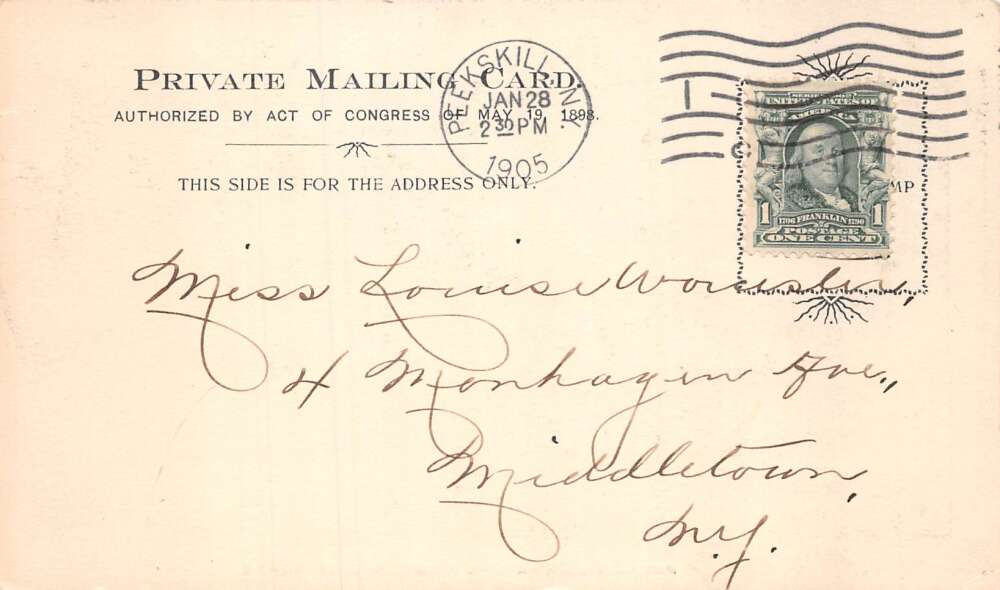 PRIVATE MAILING CARD.
AUTHORIZED BY ACT OF CONGRESS OF MAY 19, 1898.
THIS SIDE IS FOR THE ADDRESS ONLY.
PEEKSKILL N.Y.
JAN 28
2 30 PM
1905
1
SERIES 1902
UNITED STATES OF
AMERICA
1 1706 FRANKLIN 1790 1
POSTAGE
ONE CENT
MP
Miss Louise Worcester,
4 Monhagen Ave.,
Middletown,
N.Y.